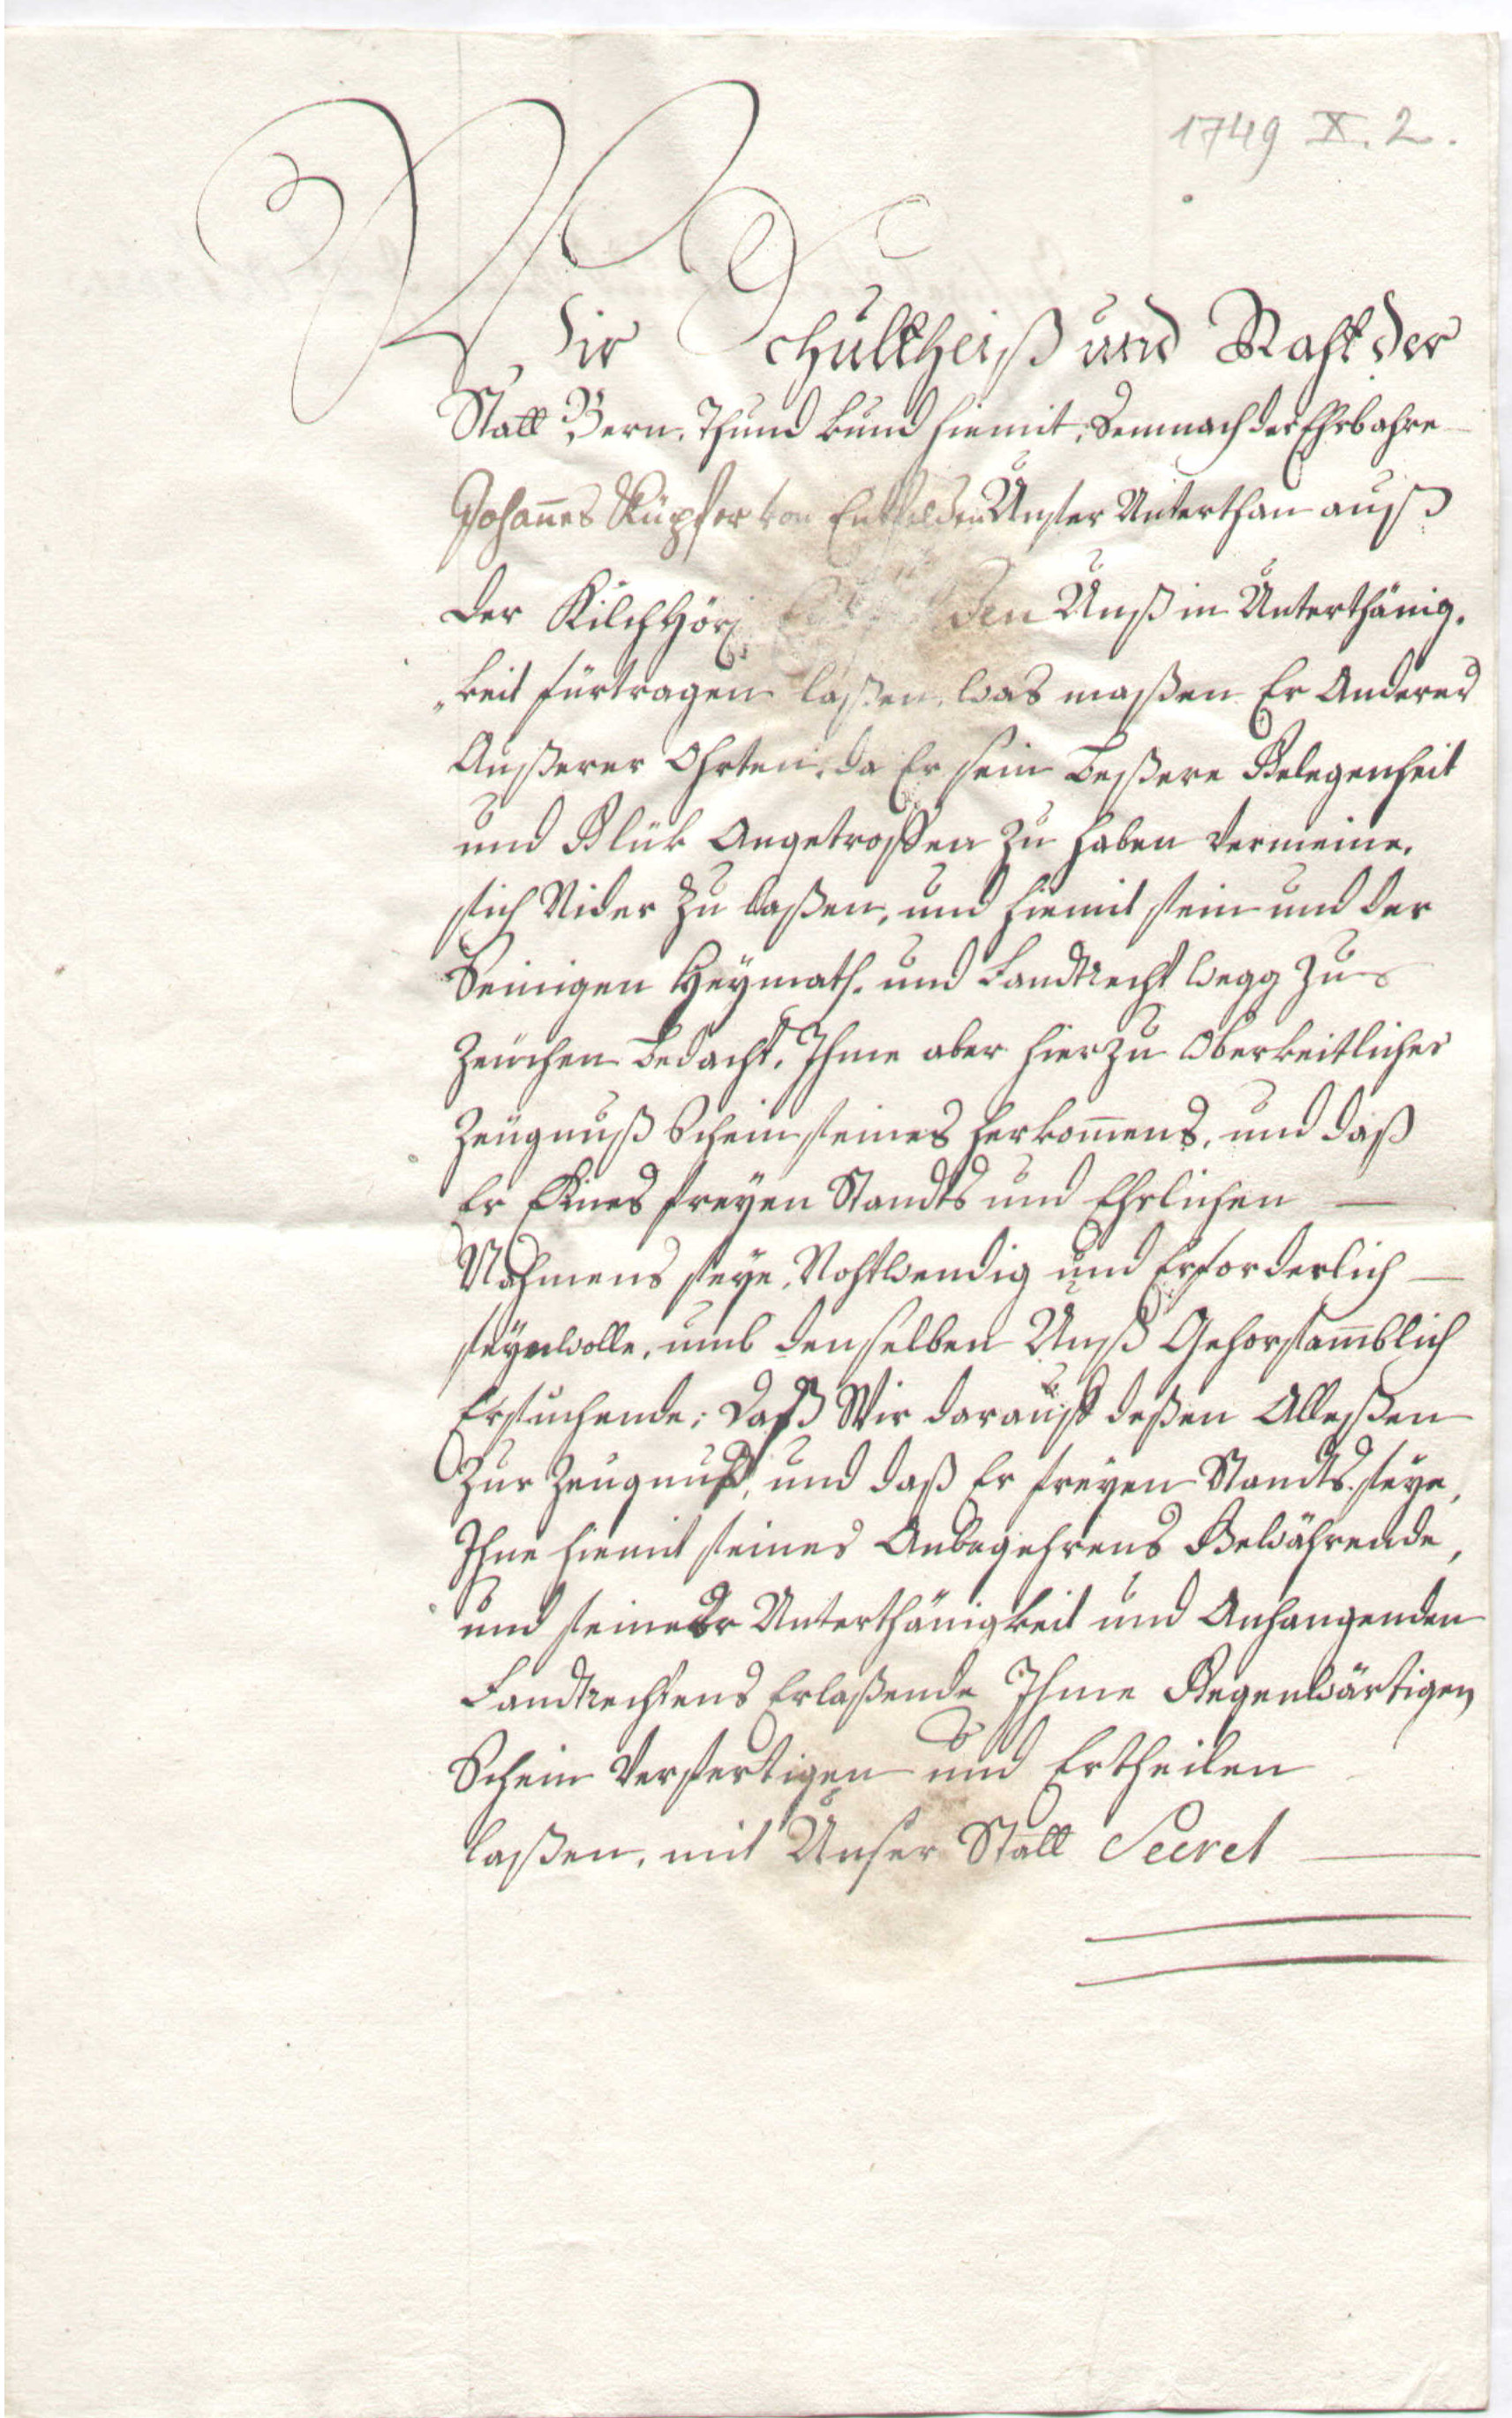 1749 X. 2.
Wir Schultheiß und Raht der
Statt Bern, Thund kund hiemit; Demnach der Ehrbahre
Johannes Küpfer von Entfelden Unser Unterthan auß
der KilchHöri den Unß in Unterthänig-
„keit fürtragen laßen, was maßen Er Anderer
Außerer Ohrten, da Er sein beßere Gelegenheit
und Glük Angetroffen zu haben vermeine,
sich Nider zu laßen, und hiemit sein und der
Seinigen Heymath- und Landtrecht wegg zu
zeuchen bedacht, Ihme aber hierzu Oberkeitlicher
Zeugnuß Schein seines Herkom̄ens, und daß
Er Eines freyen Standts und Ehrlichen
Nahmens seye, Nohtwendig und Erforderlich
seyn wolle, umb denselben Unß Gehorsam̄blich
Ersuchende; Daß Wir darauff deßen Alleßen
Zur Zeugnuß, und daß Er freyen Standts seye,
Ihne hiemit seines Anbegehrens Gewährende,
und seiner Unterthänigkeit und Anhangenden
Landtrechtens Erlaßende Ihme Gegenwärtigen
Schein Verfertigen und Ertheilen
laßen, mit Unser Statt Secret